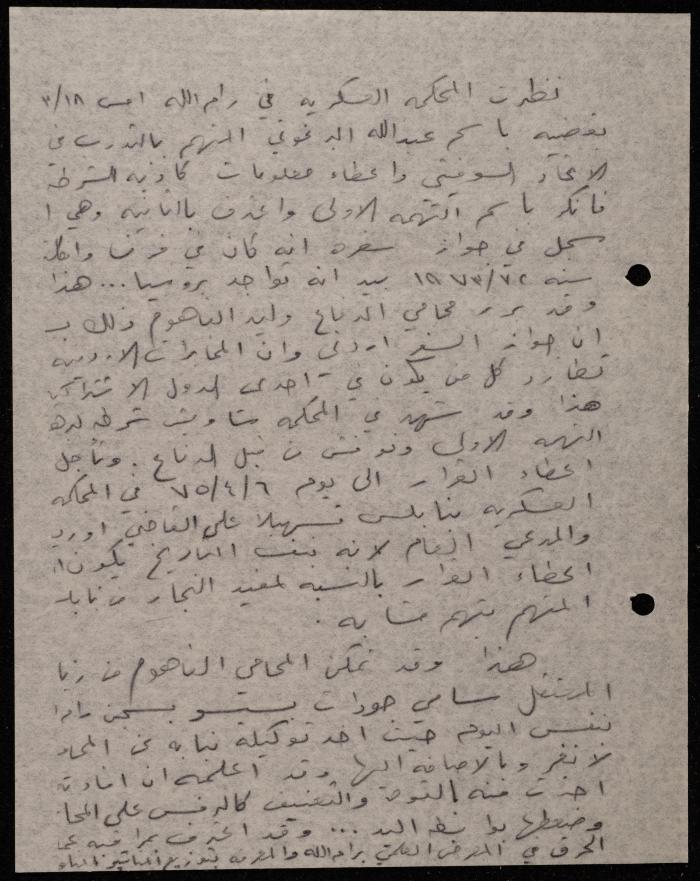 نظرت المحكمه العسكريه في رام الله امس ٣/١٨
بقضيه باسم عبدالله البرغوثي المتهم بالتدرب في
الاتحاد السوفيتي واعطاء معلومات كاذبه للشرطه
فانكر باسم التهمه الاولى واعترف بالثانيه وهي ا
سجل في جواز سفره انه كان في فرنسا
سنه ١٩٧٣/٧٢ بيد انه تواجد بروسيا... هذا
وقد برر محامي الدفاع وليد الفاهوم ذلك ب
ان جواز السفر اردني وان المخابرات الاردنيه
تطارد كل من يكون في احدى الدول الاشتراكيه
هذا وقد شهد في المحكمه شاويش شرطه
التهمه الاولى ونوقش من قبل الدفاع. وتأجل
اعطاء القرار الى يوم ٧٥/٤/٦ في المحكمه
العسكريه بنابلس تسهيلا على القاضي
والمدعي العام لانه بنفس التاريخ يكون ا
اعطاء القرار بالنسبه لمفيد النجار من نابلس
المتهم بتهم مشابه.
هذا وقد تمكن المحامي الفاهوم من زيا
المعتقل سامي بسجن راما
نفس اليوم حيث اخذ توكيله نيابه عن المحا
لانغر وبالاضافه اليها وقد اعلمه ان افادته
اخذت منه بالقوة والتعنيف كالرفس على المحا
وضغطها بواسطه اليد ... وقد اعترف
الحرق في المعرض العلمي برام الله والمعرفه بتوزيع